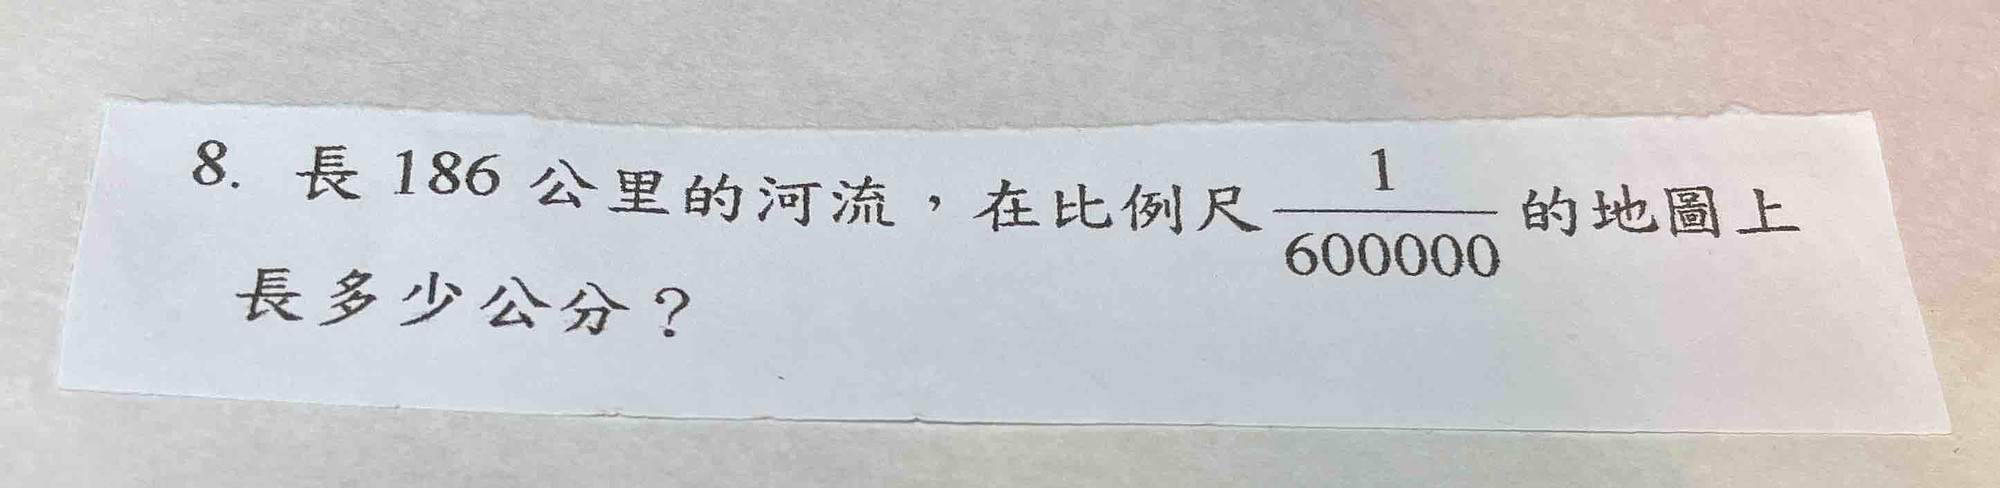 8. 長 186 公里的河流，在比例尺 1/600000 的地圖上
長多少公分？